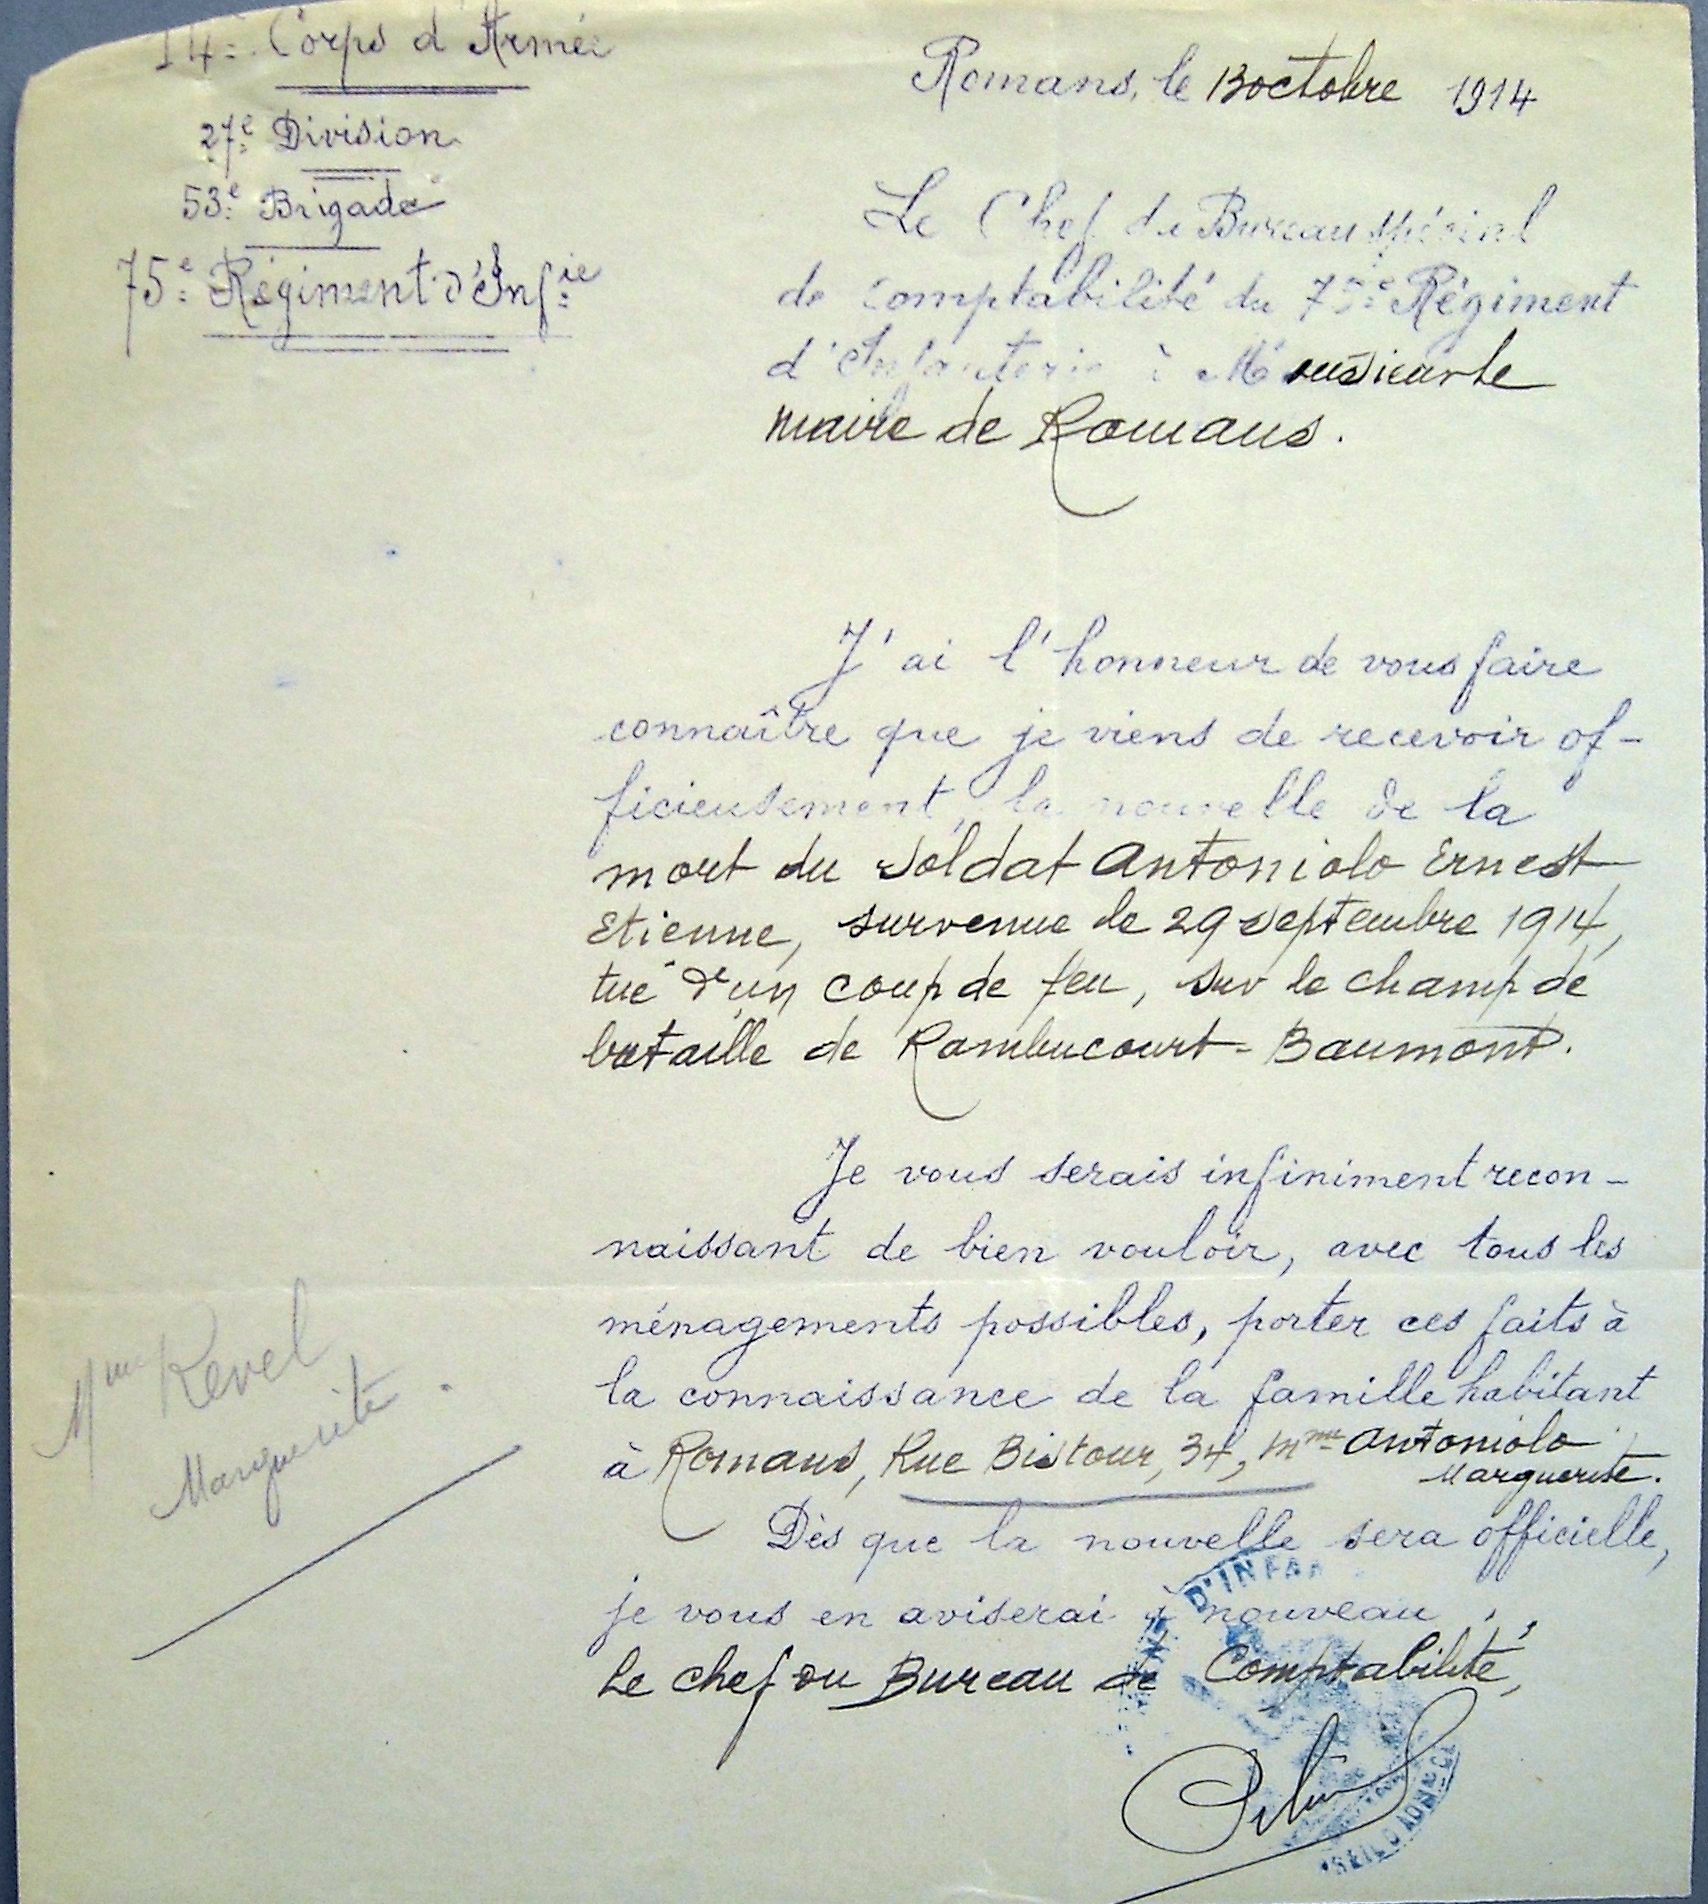 14e Corps d'Armée
27e Division
53e Brigade
75e Régiment d'Infie
Romans, le 13 octobre 1914
Le Chef du Bureau spécial
de comptabilité du 75e Régiment
d'Infanterie à Monsieur le
maire de Romans.
J'ai l'honneur de vous faire
connaître que je viens de recevoir of-
ficieusement, la nouvelle de la
mort du Soldat Antoniolo Ernest
Etienne, survenue le 29 Septembre 1914,
tué d'un coup de feu, sur le champ de
bataille de Rambucourt-Baumont.
Je vous serais infiniment recon-
naissant de bien vouloir, avec tous les
ménagements possibles, porter ces faits à
la connaissance de la famille habitant
à Romans, Rue Bistour, 34, Mme Antoniolo
Marguerite.
Mme Revel
Marguerite.
Dès que la nouvelle sera officielle,
je vous en aviserai à nouveau.
Le chef du Bureau de Comptabilité,
D'INFAN